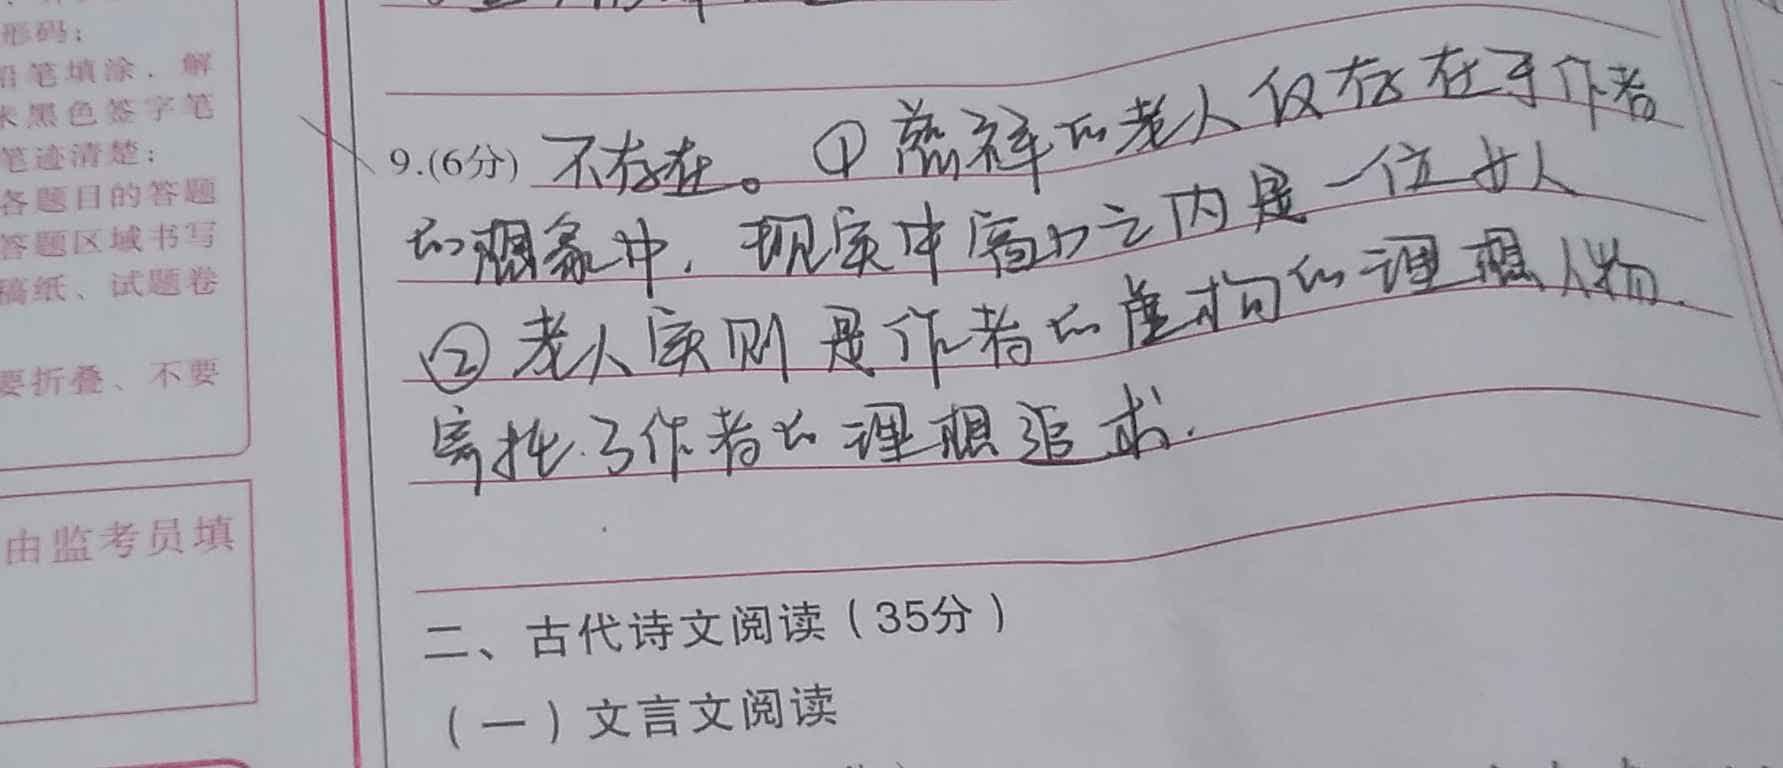 形码：
铅笔填涂．解
米黑色签字笔
笔迹清楚；
各题目的答题
答题区域书写
稿纸、试题卷
要折叠、不要
由监考员填
9.(6分) 不存在。①慈祥的老人仅存在于作者
的想象中，现实中窗口之内是一位女人
②老人实则是作者的虚构的理想人物．
寄托了作者的理想追求．
二、古代诗文阅读（35分）
（一）文言文阅读